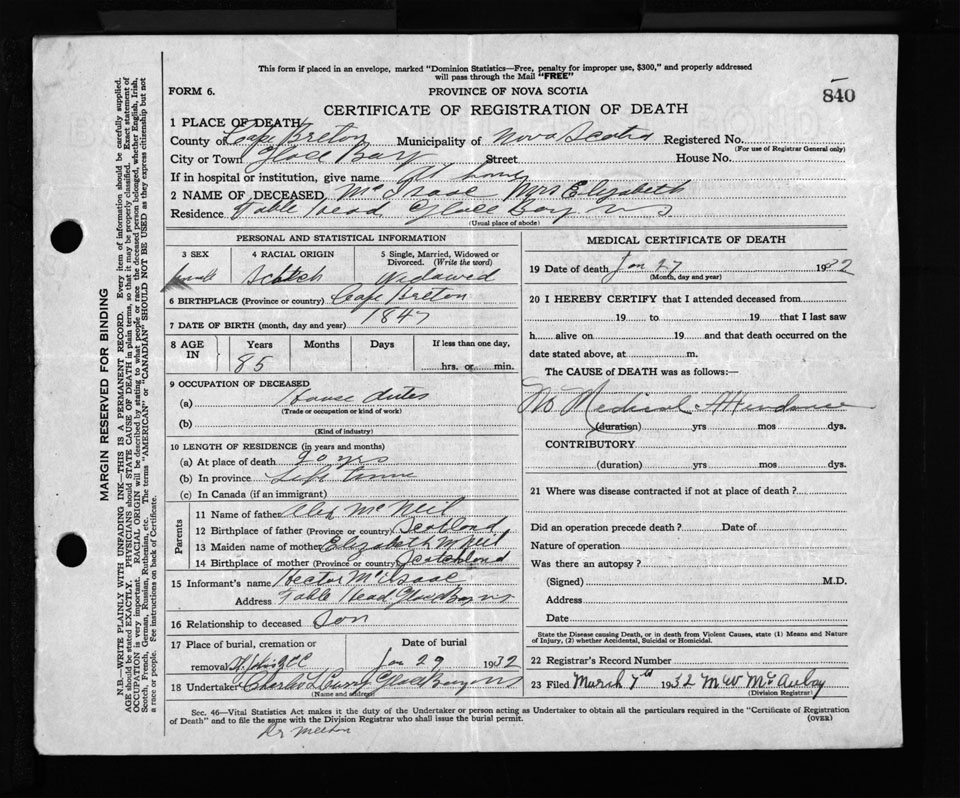 This form if placed in an envelope, marked "Dominion Statistics—Free, penalty for improper use, $300," and properly addressed
will pass through the Mail "FREE"
FORM 6.
PROVINCE OF NOVA SCOTIA
840
CERTIFICATE OF REGISTRATION OF DEATH
1 PLACE OF DEATH
County of Cape Breton Municipality of Nova Scotia Registered No.
(For use of Registrar General only)
City or Town Glace Bay Street House No.
If in hospital or institution, give name At home
2 NAME OF DECEASED McIsaac Mrs Elizabeth
Residence Table Head Glace Bay NS
(Usual place of abode)
PERSONAL AND STATISTICAL INFORMATION
3 SEX
4 RACIAL ORIGIN
5 Single, Married, Widowed or Divorced. (Write the word)
female Scotch Widowed
6 BIRTHPLACE (Province or country) Cape Breton
7 DATE OF BIRTH (month, day and year) 1847
8 AGE IN Years Months Days If less than one day,
85 hrs. or min.
9 OCCUPATION OF DECEASED
(a) House duties
(Trade or occupation or kind of work)
(b)
(Kind of industry)
10 LENGTH OF RESIDENCE (in years and months)
(a) At place of death 20 yrs
(b) In province Life time
(c) In Canada (if an immigrant)
Parents
11 Name of father Alex McNeil
12 Birthplace of father (Province or country) Scotland
13 Maiden name of mother Elizabeth McNeil
14 Birthplace of mother (Province or country) Scotchland
15 Informant's name Hector McIsaac
Address Table Head Glace Bay NS
16 Relationship to deceased Son
17 Place of burial, cremation or removal Date of burial
Jan 29 1932
18 Undertaker Charles L Curry Glace Bay NS
(Name and address)
MEDICAL CERTIFICATE OF DEATH
19 Date of death Jan 27 1932
(Month, day and year)
20 I HEREBY CERTIFY that I attended deceased from
19 to 19 that I last saw
h alive on 19 and that death occurred on the
date stated above, at m.
The CAUSE of DEATH was as follows:—
No Medical Attendance
(duration) yrs mos dys.
CONTRIBUTORY
(duration) yrs mos dys.
21 Where was disease contracted if not at place of death?
Did an operation precede death? Date of
Nature of operation
Was there an autopsy?
(Signed) M.D.
Address
Date
State the Disease causing Death, or in death from Violent Causes, state (1) Means and Nature of Injury, (2) whether Accidental, Suicidal or Homicidal.
22 Registrar's Record Number
23 Filed March 7th 1932 M W
(Division Registrar)
Sec. 46—Vital Statistics Act makes it the duty of the Undertaker or person acting as Undertaker to obtain all the particulars required in the "Certificate of Registration
of Death" and to file the same with the Division Registrar who shall issue the burial permit.
(OVER)
Dr
MARGIN RESERVED FOR BINDING
N.B.—WRITE PLAINLY WITH UNFADING INK—THIS IS A PERMANENT RECORD. Every item of information should be carefully supplied.
AGE should be stated EXACTLY. PHYSICIANS should STATE CAUSE OF DEATH in plain terms, so that it may be properly classified. Exact statement of
OCCUPATION is very important. RACIAL ORIGIN will be described by stating to what people or race the deceased person belonged, whether English, Irish,
Scotch, French, German, Russian, Ruthenian, etc. The terms "AMERICAN" or "CANADIAN" SHOULD NOT BE USED as they express citizenship but not
a race or people. See instructions on back of Certificate.